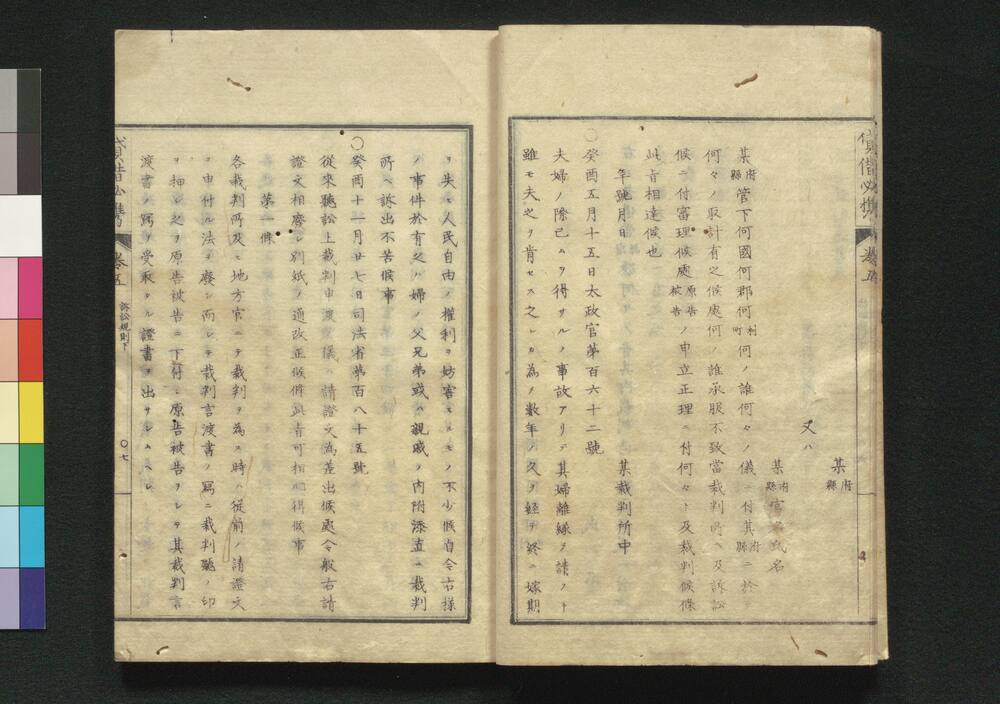 某府縣
又ハ
某府縣
官名氏名
某府縣管下何國何郡何村町何ノ誰何々ノ儀ニ付其府縣ニ於テ
何々ノ取計有之候處何ノ誰承服不致當裁判所ヘ及訴訟
候ニ付審理候處原告被告ノ申立正理ニ付何々ト及裁判候條
此旨相達候也
年號月日 某裁判所中
○癸酉五月十五日太政官第百六十二號
夫婦ノ際已ムヲ得サルノ事故アリテ其婦離縁ヲ請フト
雖モ夫之ヲ肯セス之レカ為ノ數年ノ久ヲ經テ終ニ嫁期
ヲ失ヒ人民自由ノ權利ヲ妨害スルモノ不少候自今右様
ノ事件於有之ハ婦ノ父兄弟或ハ親戚ノ内附添直ニ裁判
所ヘ訴出不苦候事
○癸酉十一月廿七日司法省第百八十五號
從來聽訟上裁判申渡ノ儀ハ請證文為差出候處今般右請
證文相廢シ別紙ノ通改正候條此旨可相心得候事
第一條
各裁判所及ヒ地方官ニテ裁判ヲ為ス時ハ從前ノ請證文
ヲ申付ル法ヲ廢シ而シテ裁判言渡書ノ寫ニ裁判廳ノ印
ヲ押シ之ヲ原告被告ニ下付シ原告被告ヲシテ其裁判言
渡書ノ寫ヲ受取タル證書ヲ出サシムヘシ
貸借必携 巻五 訴訟規則下 ○七